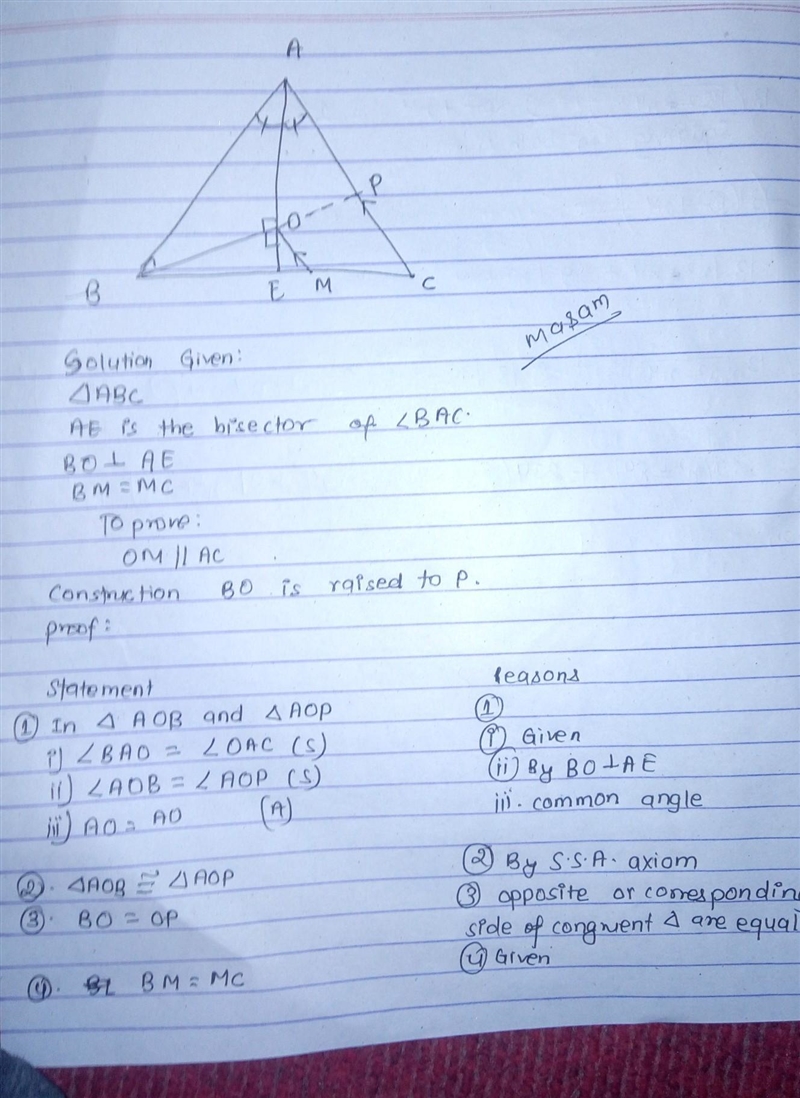 A
P
O
B
E
M
C
masam
Solution Given:
△ABC
AE is the bisector of ∠BAC.
BO ⊥ AE
BM = MC
To prove:
OM // AC
Construction BO is raised to P.
proof:
Statement
① In △ AOB and △AOP
i) ∠BAO = ∠OAC (S)
ii) ∠AOB = ∠AOP (S)
iii) AO = AO (A)
②. △AOB ≅ △AOP
③. BO = OP
④. BM = MC
reasons
①
(i) Given
(ii) By BO ⊥ AE
iii. common angle
② By S.S.A. axiom
③ opposite or corresponding
side of congruent △ are equal
④ Given